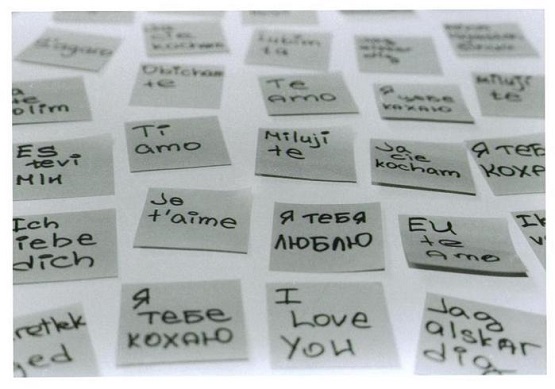 Ja
cie
kocham
Lubim
ta
Jag
alskar
dig
Obicham
te
Te
amo
Я тебе
кохаю
Miluji
te
te
olim
ES
tevi
MIH
Ti
amo
Miluji
te
Ja
cie
kocham
Я ТЕБ
КОХА
Ich
iebe
dich
Je
t'aime
Я ТЕБЯ
ЛЮБЛЮ
EU
te
Amo
retlek
ged
Я
ТЕБЕ
КОХАЮ
I
Love
YOU
Jag
alskar
dig